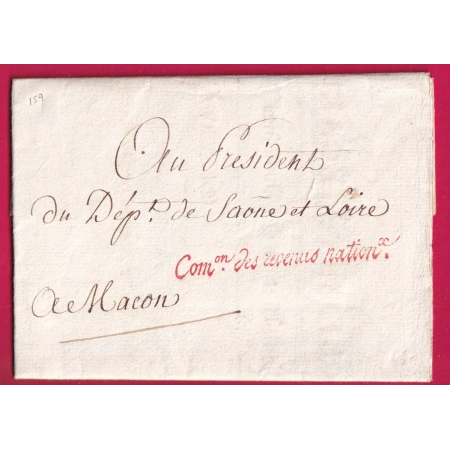 159
Au President
du Dép.t de Saône et Loire
Com.on des revenus nation.x
A Macon